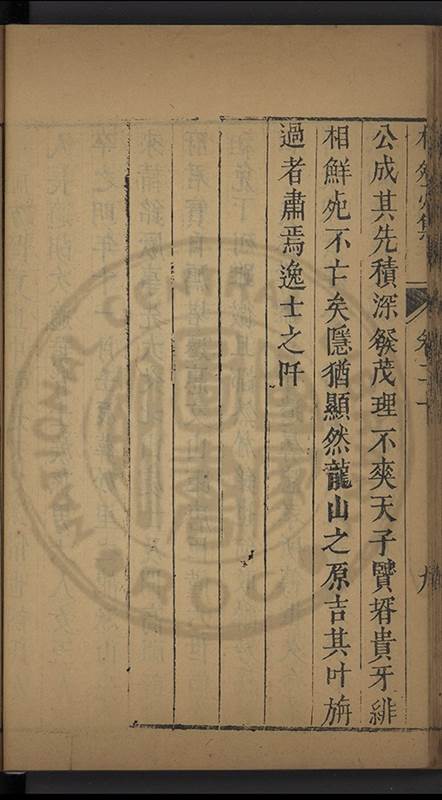 公成其先積深發茂理不爽天子賢壻貴牙緋
相鮮死不亡矣隱猶顯然龍山之原吉其叶旃
過者肅焉逸士之阡
卷二十
九